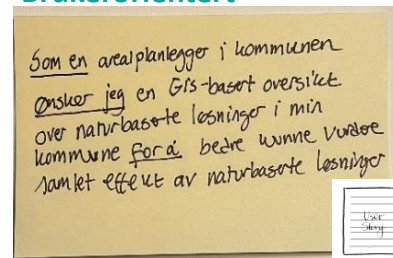 Brukerorientert
Som en arealplanlegger i kommunen
ønsker jeg en GIS-basert oversikt
over naturbaserte løsninger i min
kommune for å bedre kunne vurdere
samlet effekt av naturbaserte løsninger
User
Story